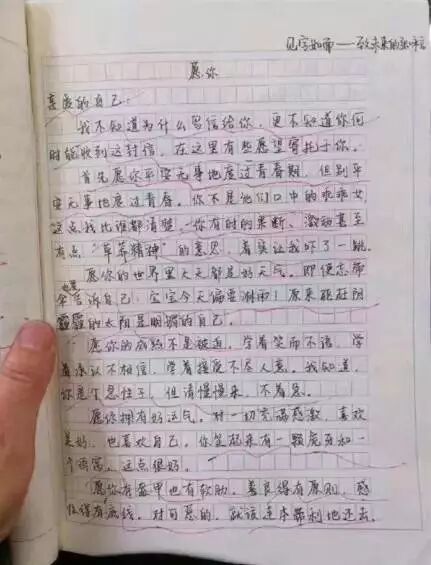 见字如面——致未来的
愿你
亲爱的自己：
我不知道为什么写信给你，更不知道你何
时能收到这封信，在这里有些愿望寄托于你。
首先愿你平安无事地度过青春期，但别平
安无事地度过青春。你不是他们口中的乖乖女，
这点我比谁都清楚。你有时的果断、激动甚至
有点“草莽精神”的意思，着实让我吓了一跳。
愿你的世界里天天都是好天气。即便忘带
伞也要告诉自己：宝宝今天偏要淋雨！原来能赶阴
霾的太阳是明媚的自己。
愿你的成熟不是被迫，学着笑而不语，学
着承认不相信，学着接受不尽人意。我知道，
你是个急性子，但请慢慢来，不着急。
愿你拥有好运气。对一切充满感激，喜欢
美好，也喜欢自己。你笑起来有一颗虎牙和一
个酒窝，这点很好。
愿你有盔甲也有软肋，善良得有原则，感
性得有底线。对可恶的，就该连本带利地还去。